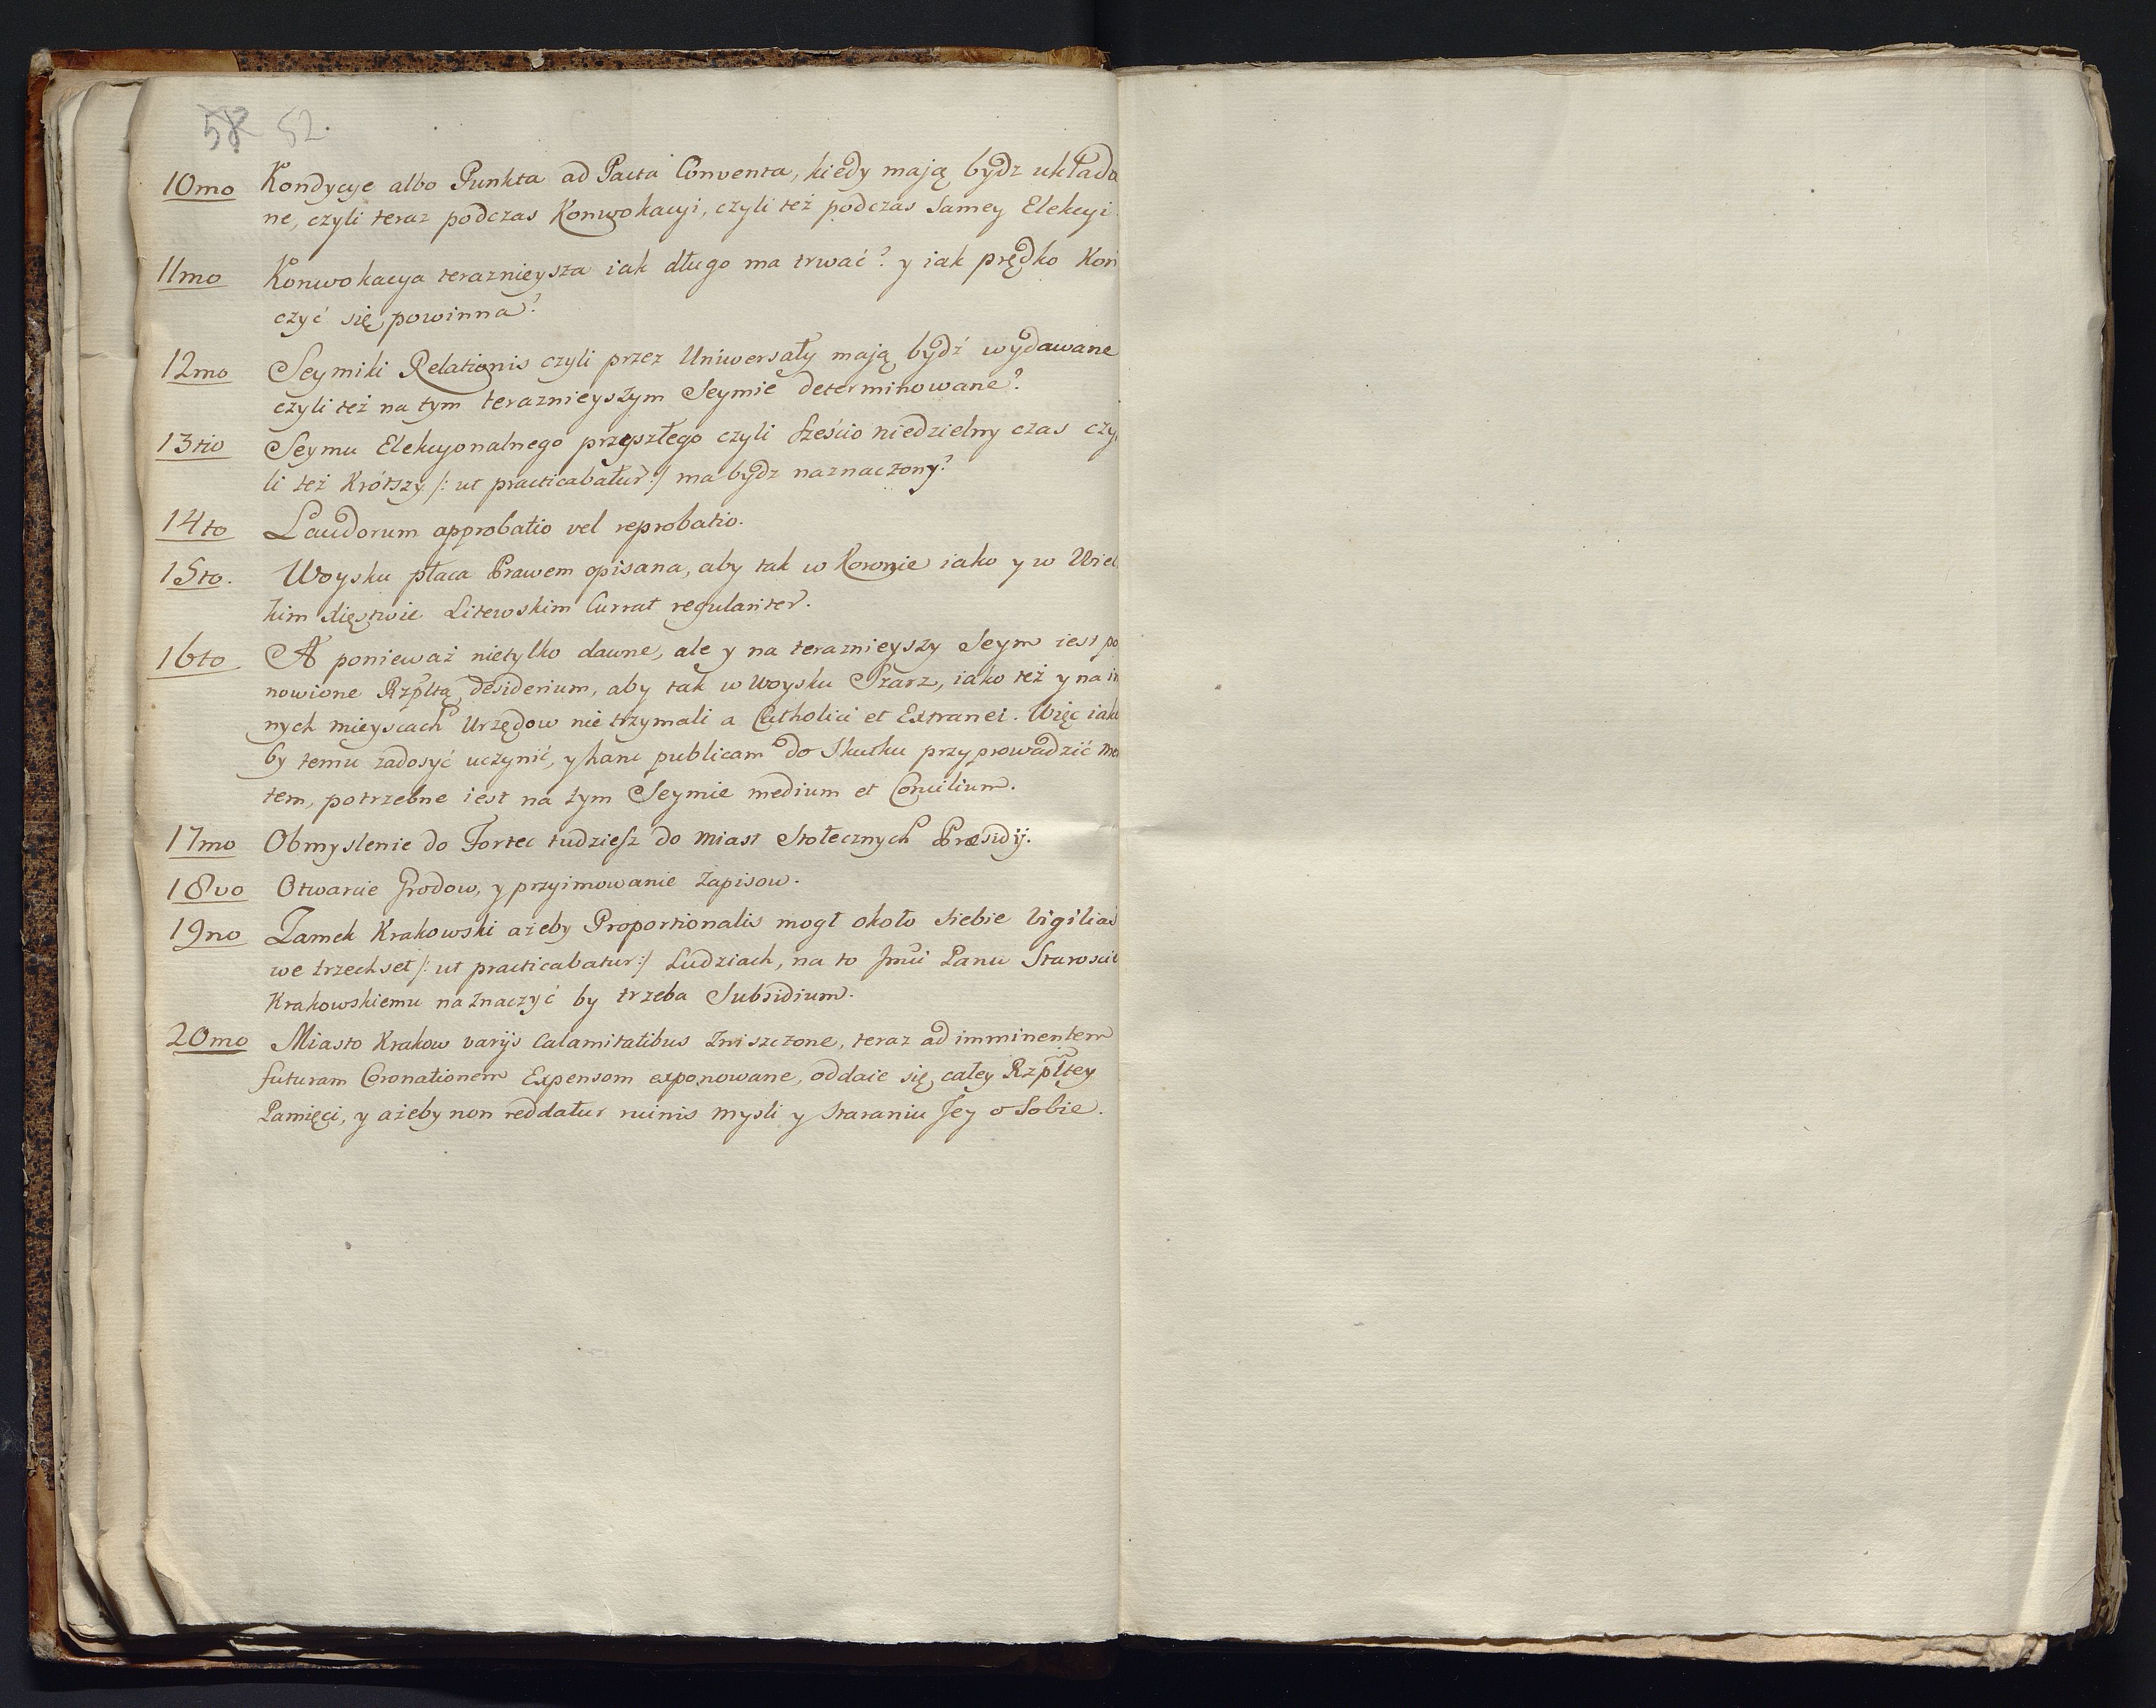 58 52.
10mo Kondycye albo Punkta ad Pacta Conventa, kiedy mają bydz układa
ne, czyli teraz podczas Konwokacyi, czyli też podczas Samey Elekcyi
11mo Konwokacya teraznieysza iak długo ma trwać? y iak prędko Koń
czyć się powinna?
12mo Seymiki Relationis czyli przez Uniwersały mają bydź wydawane
czyli też na tym teraznieyszym Seymie determinowane?
13tio Seymu Elekcyonalnego przyszłego czyli Sześcio niedzielny czas czy
li też Krótszy /: ut practicabatur :/ ma bydz naznaczony?
14to Laudorum approbatio vel reprobatio.
15to. Woysku płaca Prawem opisana, aby tak w Koronie iako y w Wiel
kim Xięstwie Litewskim Currat regulariter.
16to A ponieważ nietylko dawne, ale y na teraznieyszy Seym iest po
nowione Rzpltą desiderium, aby tak w Woysku Szarz, iako też y na in
nych mieyscach Urzędow nie trzymali a Catholici et Extranei. Więc iako
by temu zadosyć uczynić, y hanc publicam do Skutku przyprowadzić men
tem, potrzebne iest na tym Seymie medium et Concilium.
17mo Obmyslenie do Fortec tudziesz do Miast Stołecznych Præsidij.
18vo Otwarcie Grodow, y przyimowanie Zapisow.
19no Zamek Krakowski ażeby Proportionalis mogł około siebie Vigilias
we trzechset /: ut practicabatur :/ Ludziach, na to Jmci Panu Staroscie
Krakowskiemu naznaczyć by trzeba Subsidium.
20mo Miasto Krakow varijs Calamitatibus Zniszczone, teraz ad imminentem
futuram Coronationem Expensom exponowane, oddaie się całey Rzpltey
Pamięci, y ażeby non reddatur ruinis mysli y Staraniu Jey o Sobie.